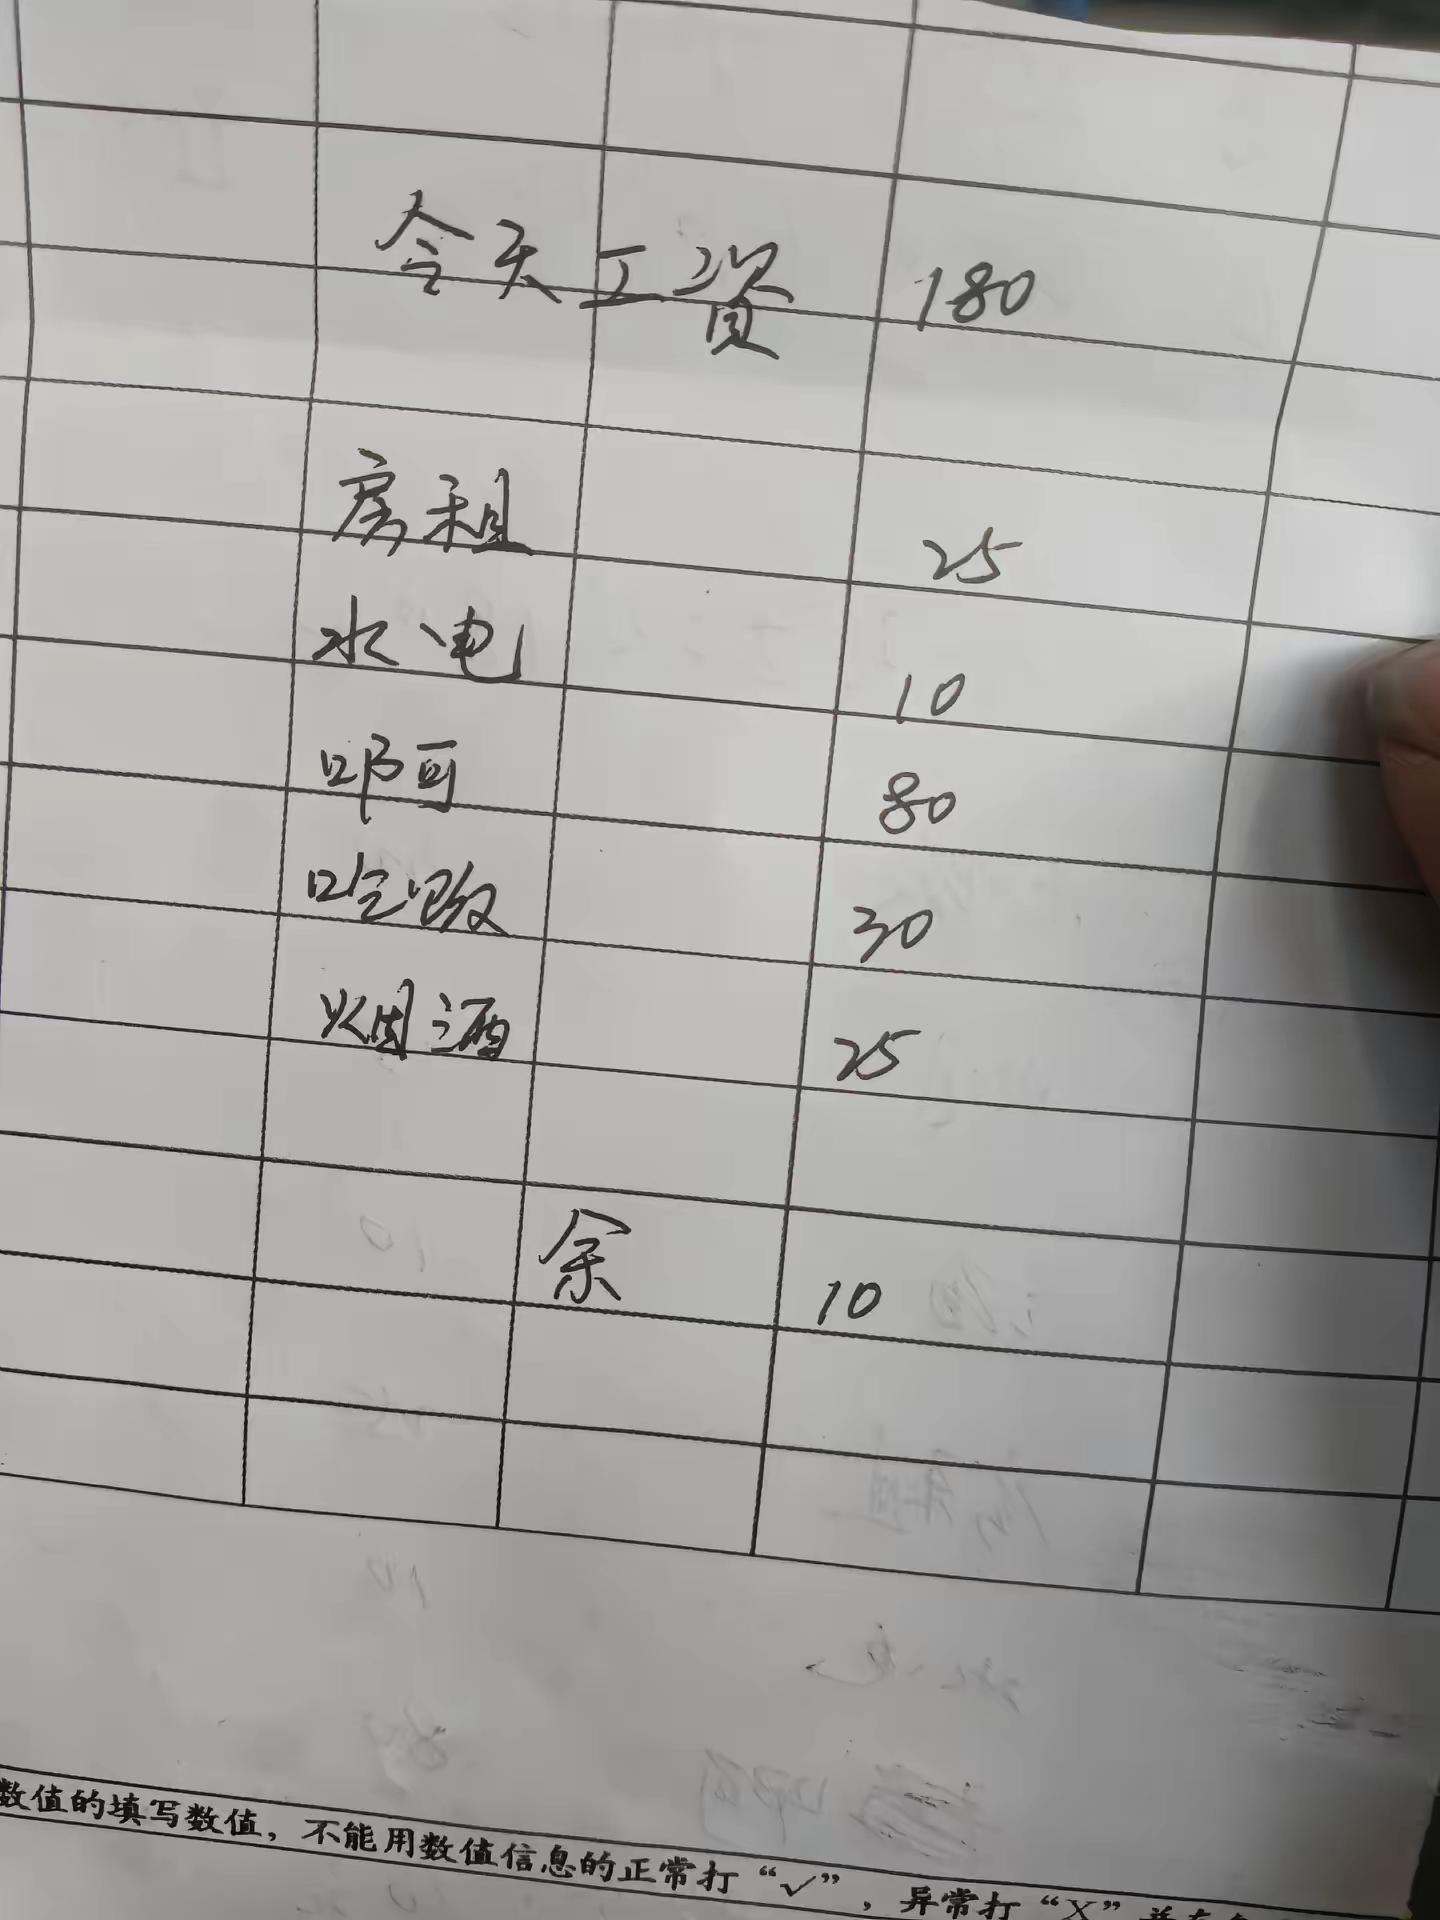 今天工资 180
房租 25
水电 10
吖可 80
吃饭 30
烟酒 25
余 10
数值的填写数值，不能用数值信息的正常打“√”，异常打“X”并在